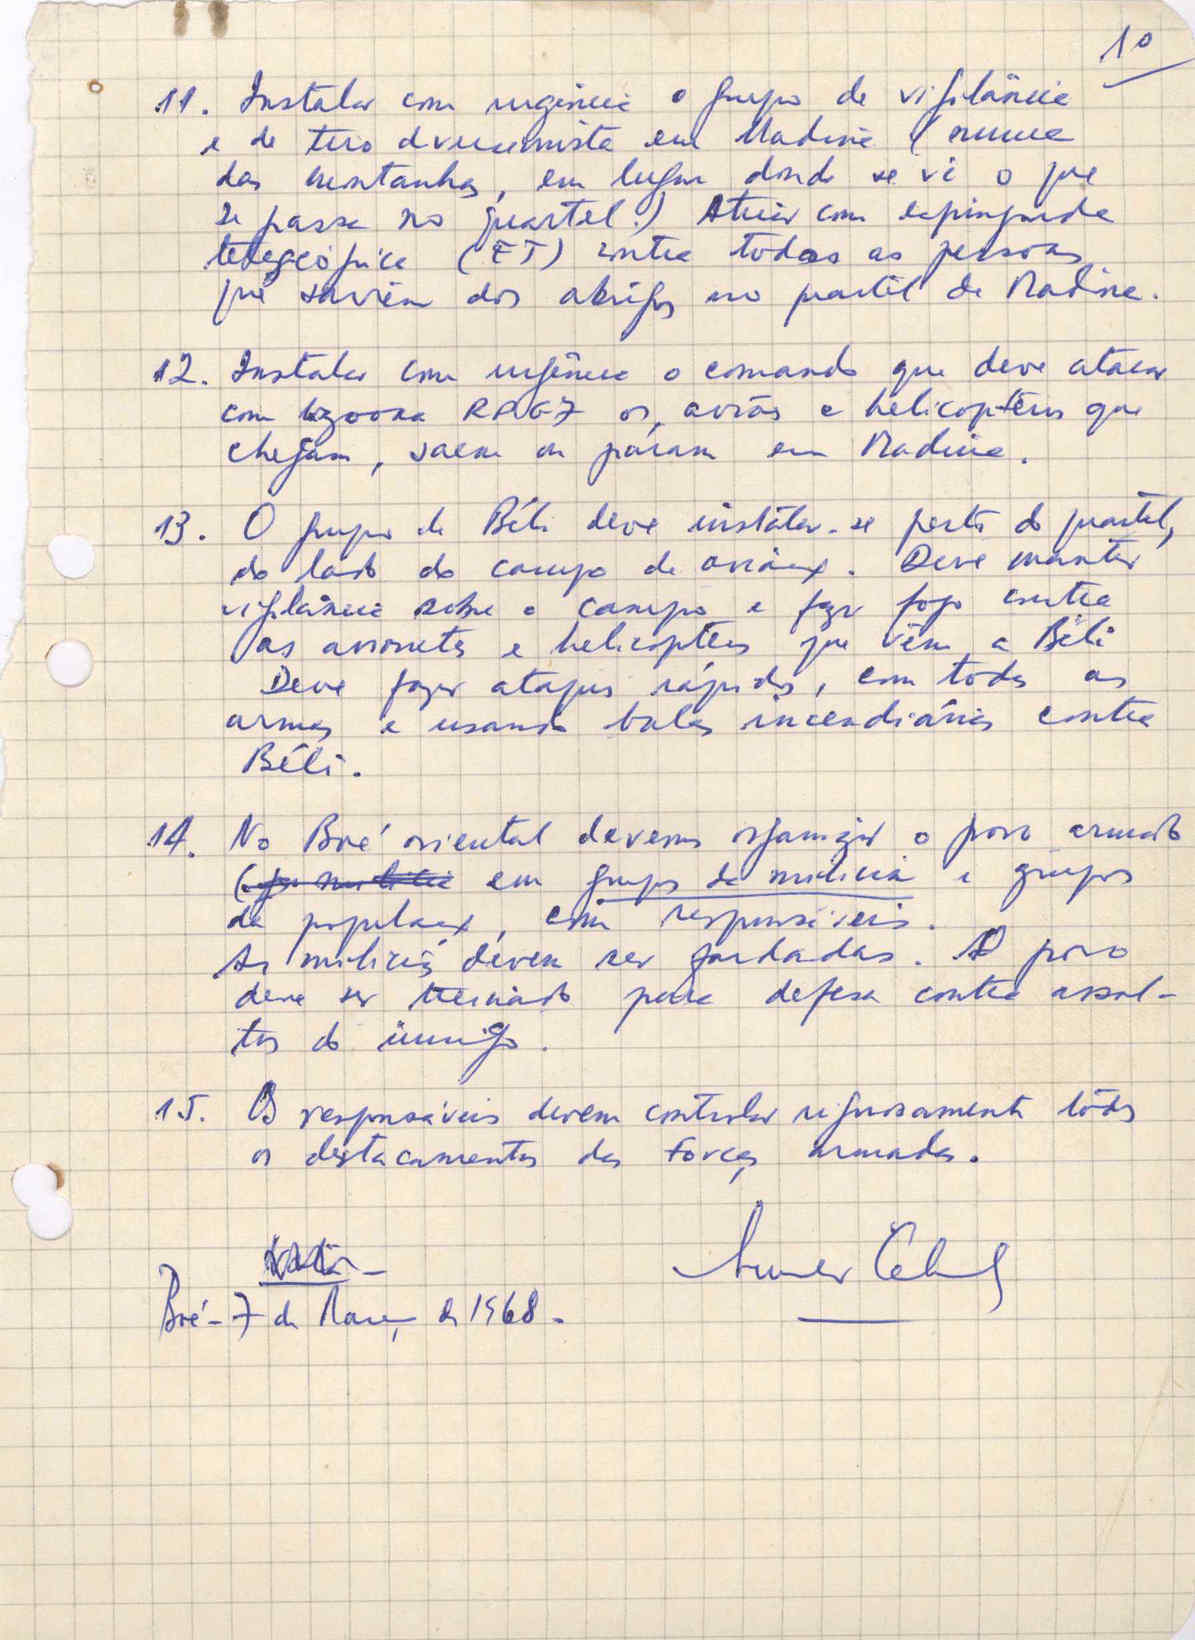 10
11. Instalar com urgência o grupo de vigilância
e de tiro em Madina (numa
das montanhas, em lugar donde se vê o que
se passa no quartel.) Atirar com espingarda
telescópica (ET) contra todas as pessoas
que saiem dos abrigos no quartel de Madina.
12. Instalar com urgência o comando que deve atacar
com bazooka RPG7 os aviões e helicopteros que
chegam, saem ou páram em Madina.
13. O grupo de Béli deve instalar-se perto do quartel,
do lado do campo de aviação. Deve manter
vigilância sobre o campo e fazer fogo contra
as avionetas e helicopteros que vêm a Béli
Deve fazer ataques rápidos, com todas as
armas e usando balas incendiárias contra
Béli.
14. No Boé oriental devemos organizar o povo armado
em grupos de milicia e grupos
da população, com responsáveis.
As milicias devem ser fardadas. O povo
deve ser treinado para defesa contra assal-
tos do inimigo.
15. Os responsáveis devem controlar rigorosamente todos
os destacamentos das Forças armadas.
Boé - 7 de Março de 1968. -
Amilcar Cabral